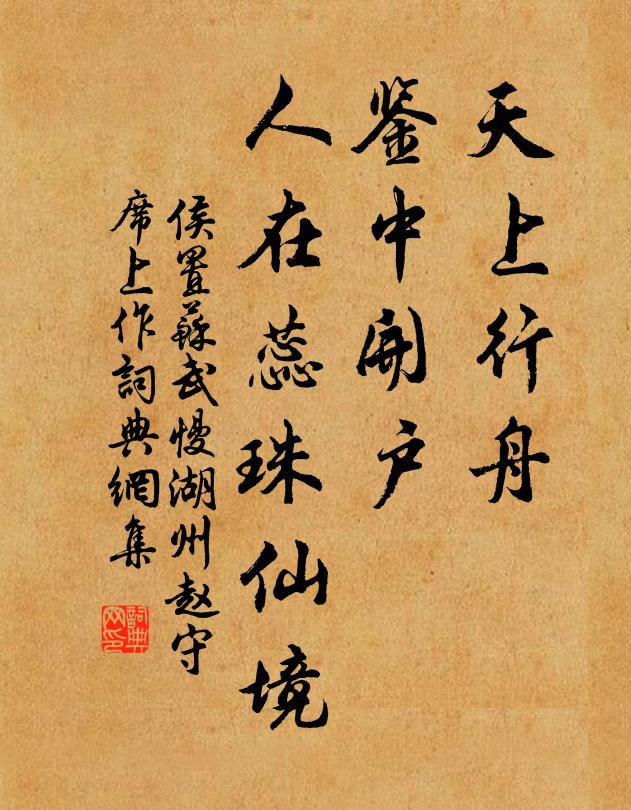 天上行舟
鉴中開户
人在蕊珠仙境
侯置蘇武慢湖州赵守
席上作詞典網集
詞典网印